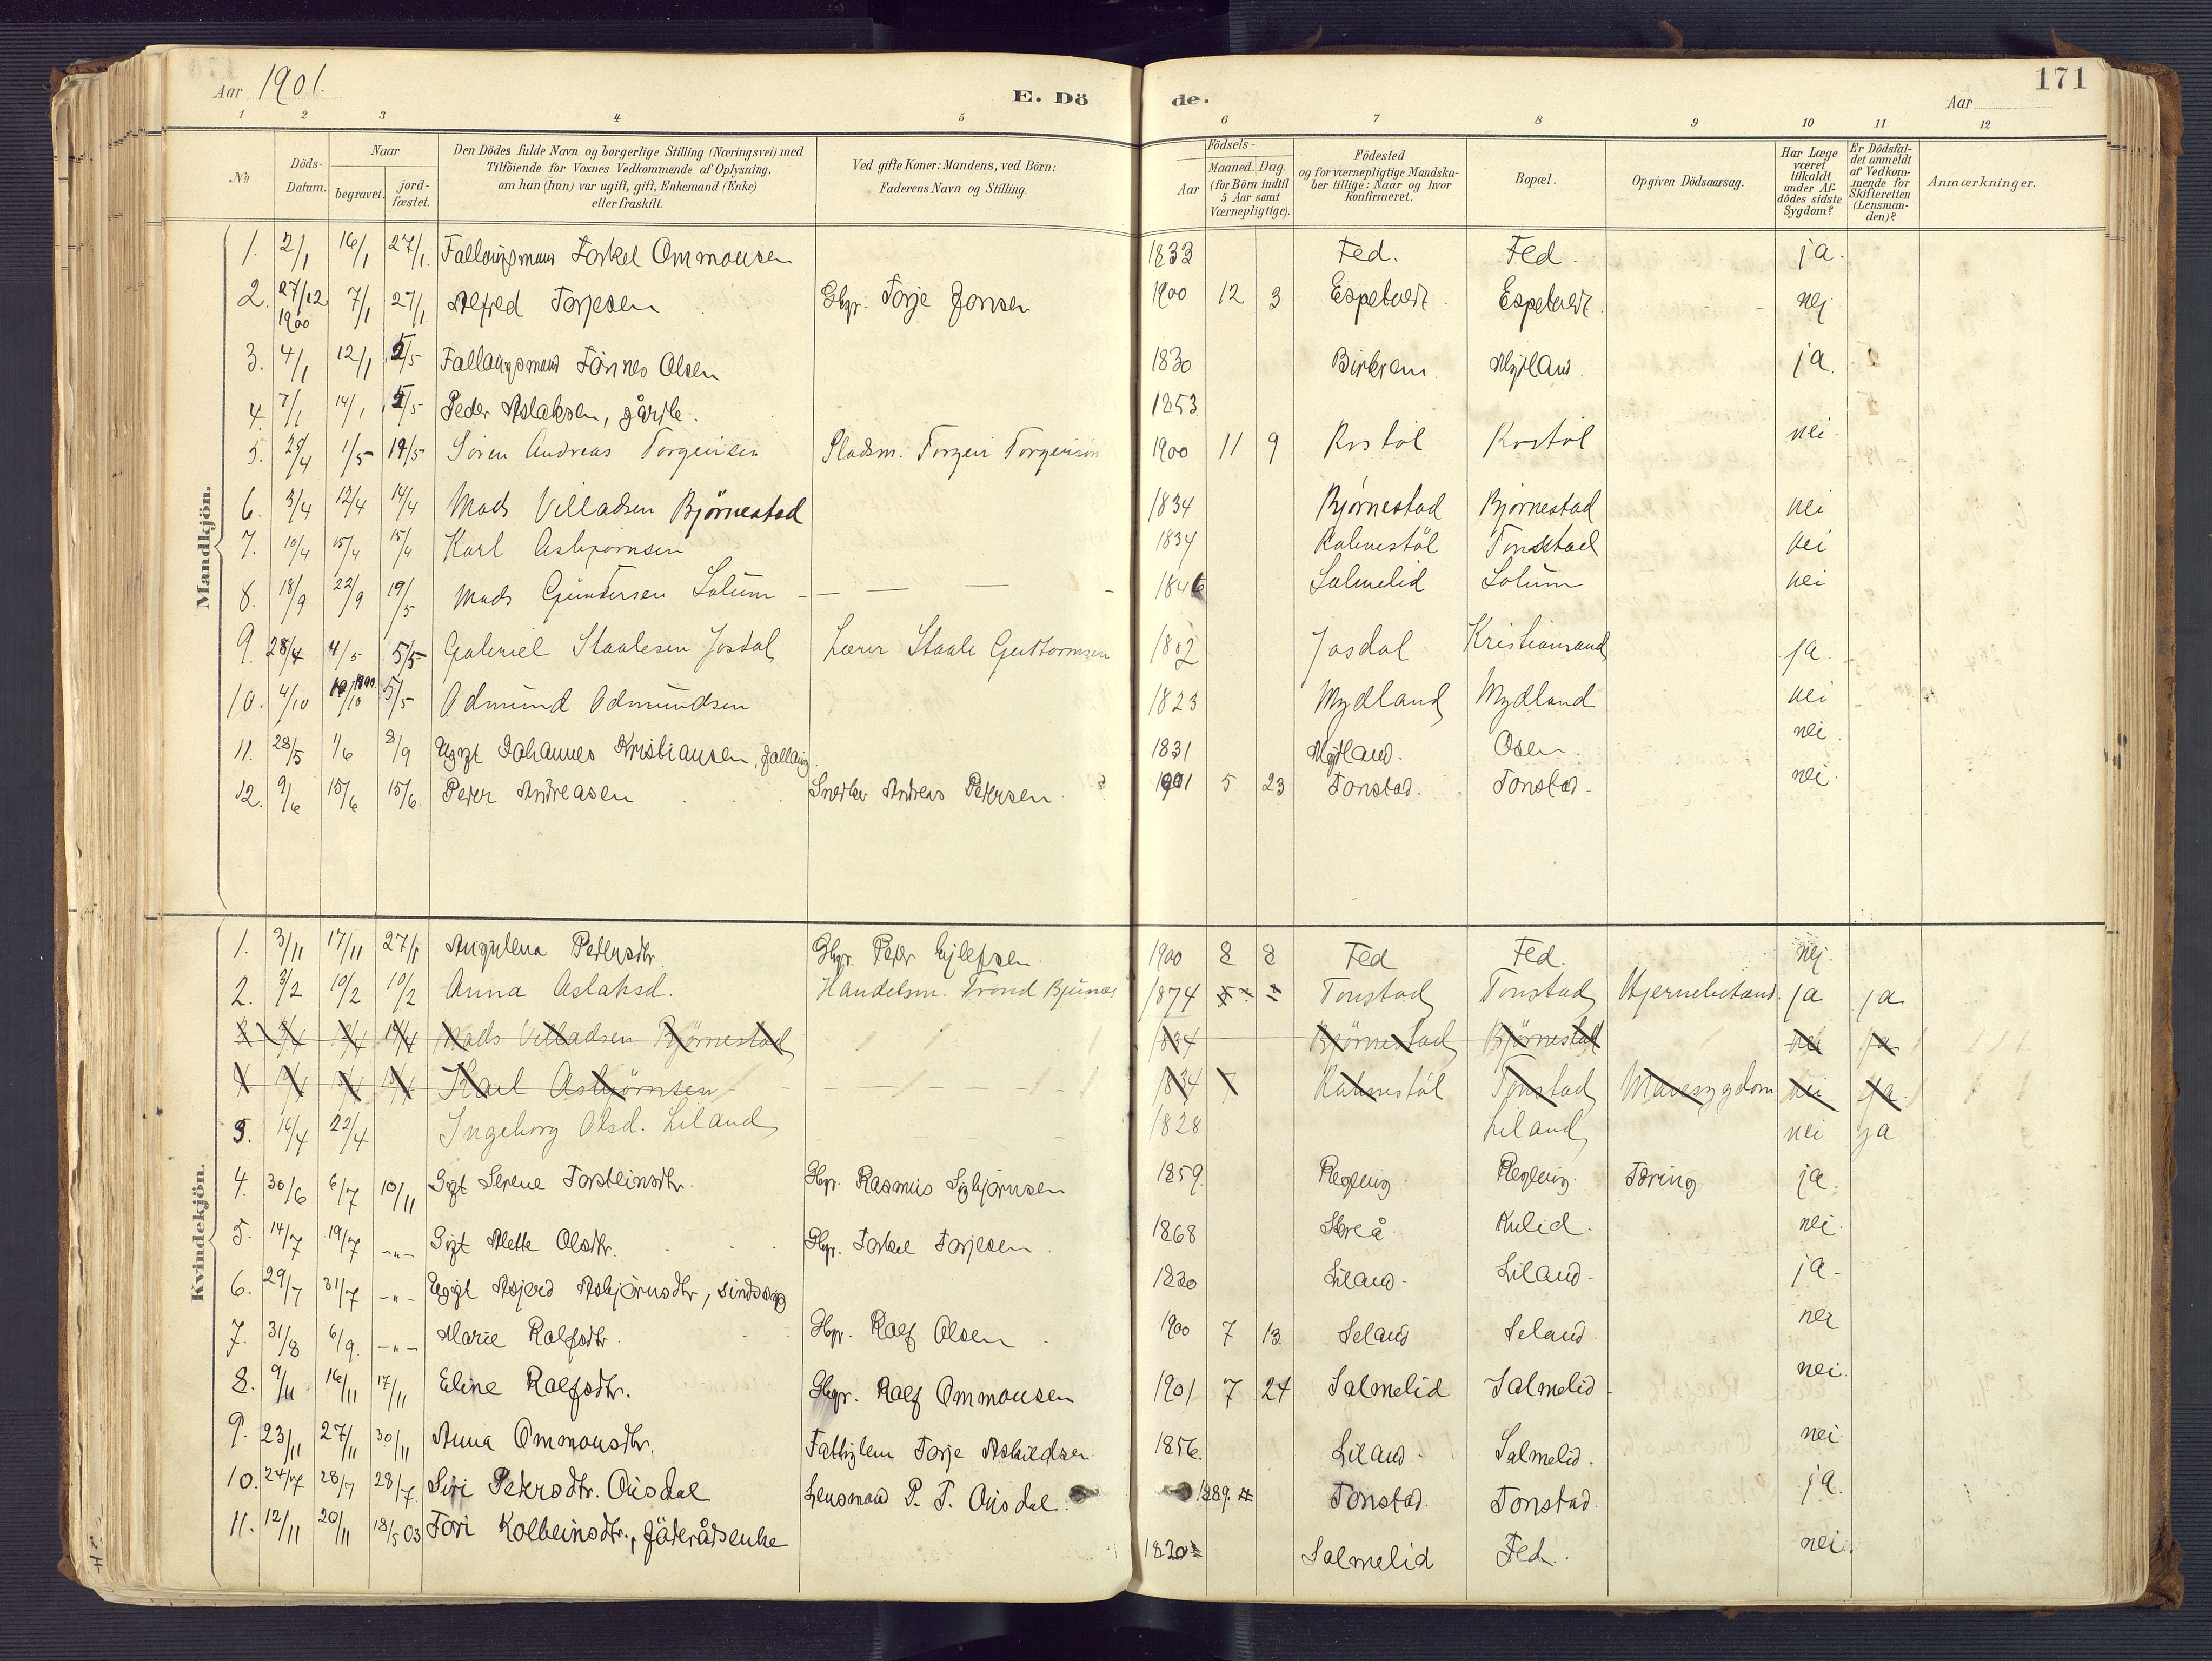 Aar 1901.
E. Dö de.
Aar
171
1 2 3 4 5 6 7 8 9 10 11 12
No
Döds-Datum.
Naar
begravet.
jord-fæstet.
Den Dödes fulde Navn og borgerlige Stilling (Næringsvei) med
Tilföiende for Voxnes Vedkommende af Oplysning,
om han (hun) var ugift, gift, Enkemand (Enke)
eller fraskilt.
Ved gifte Koner: Mandens, ved Börn:
Faderens Navn og Stilling.
Födsels-
Aar
Maaned. Dag.
(for Börn indtil
5 Aar samt
Værnepligtige).
Födested
og for værnepligtige Mandska-
ber tillige: Naar og hvor
konfirmeret.
Bopæl.
Opgiven Dödsaarsag.
Har Læge
været
tilkaldt
under Af-
dödes sidste
Sygdom?
Er Dödsfal-
det anmeldt
af Vedkom-
mende for
Skifteretten
(Lensman-
den)?
Anmærkninger.
Mandkjön.
1. 2/1 16/1 27/1 Torkel Ommonsen 1833 Fed. Fed. ja.
2. 27/12 1900 7/1 27/1 Alfred Torjesen Gbgr. Torje Jonsen 1900 12 3 Espetvedt Espetvedt nej
3. 4/1 12/1 5/5 Tönnes Olsen 1830 Birkrem Mydland. ja.
4. 7/1 14/1 5/5 Peder Aslaksen, 1853
5. 25/4 1/5 19/5 Sören Andreas Torgeirsen Pladsm. Torgeir Torgeirsen 1900 11 9 Rostöl Rostöl nei
6. 3/4 12/4 14/4 Mads Villadsen Björnestad 1834 Björnestad Björnestad nei
7. 10/4 15/4 15/4 Karl Asbjörnsen 1834 Tonstad nei
8. 18/9 22/9 19/5 Mads Guntersen Solum 1846 Salmelid Solum nei
9. 28/4 4/5 5/5 Gabriel Staalesen Josdal Lærer Staale Guttormsen 1802 Josdal Kristiansand ja
10. 4/10 10/10 1900 5/5 Odmund Odmundsen 1823 Mydland Mydland nei
11. 28/5 1/6 8/9 Ugft Johannes Kristiansen, 1831 Mydland. Osen nei
12. 9/6 15/6 15/6. Peter Andreasen Snedker Andreas Petersen 1901 5 23 Tonstad. Tonstad. nei
Kvindekjön.
1. 3/11 17/11 27/1 Angulena Petersdtr. Gbgr. Peter Eilefsen. 1900 8 8 Fed Fed. nej.
2. 3/2 10/2 10/2 Anna Aslaksd. Handelsm. Trond Bjunes 1874 Tonstad Tonstad ja ja
Mads Villadsen Björnestad 1834 Björnestad Björnestad nei ja
Karl Asbjörnsen 1834 Tonstad Mavesygdom nei ja
3. 16/4 22/4 Ingeborg Olsd. Liland 1828 Liland nei ja
4. 30/6 6/7 10/11 Gift Serene Torsteinsdtr. Gbgr. Rasmus Sigbjörnsen 1859. Regleiv Regleiv Tæring ja.
5. 14/7 19/7 -"- Gift Mette Olsdtr. Gbgr. Torkel Torjesen 1868 Skreå Kulid. nei.
6. 29/7 31/7 -"- Ugift Asjerd Asbjörnsdtr, sindssyg 1820 Liland. Liland. ja.
7. 31/8 6/9. -"- Marie Ralfsdtr. Gbgr. Ralf Olsen 1900 7 13 Seland Seland nei
8. 9/11 16/11 17/11 Eline Ralfsdtr. Gbgr. Ralf Ommonsen 1901 7 24 Salmelid Salmelid nei.
9. 23/11 27/11 30/11 Anna Ommonsdtr. Fattiglem Torje Askildsen 1856. Liland. Salmelid. nei
10. 24/7 28/7 28/7. Siri Petersdtr. Ousdal Lensmand P. T. Ousdal 1889. Tonstad. Tonstad. ja.
11. 12/11 20/11 18/5 03 Tori Kolbeinsdtr., Föderådsenke 1820 Salmelid Fed. nei.